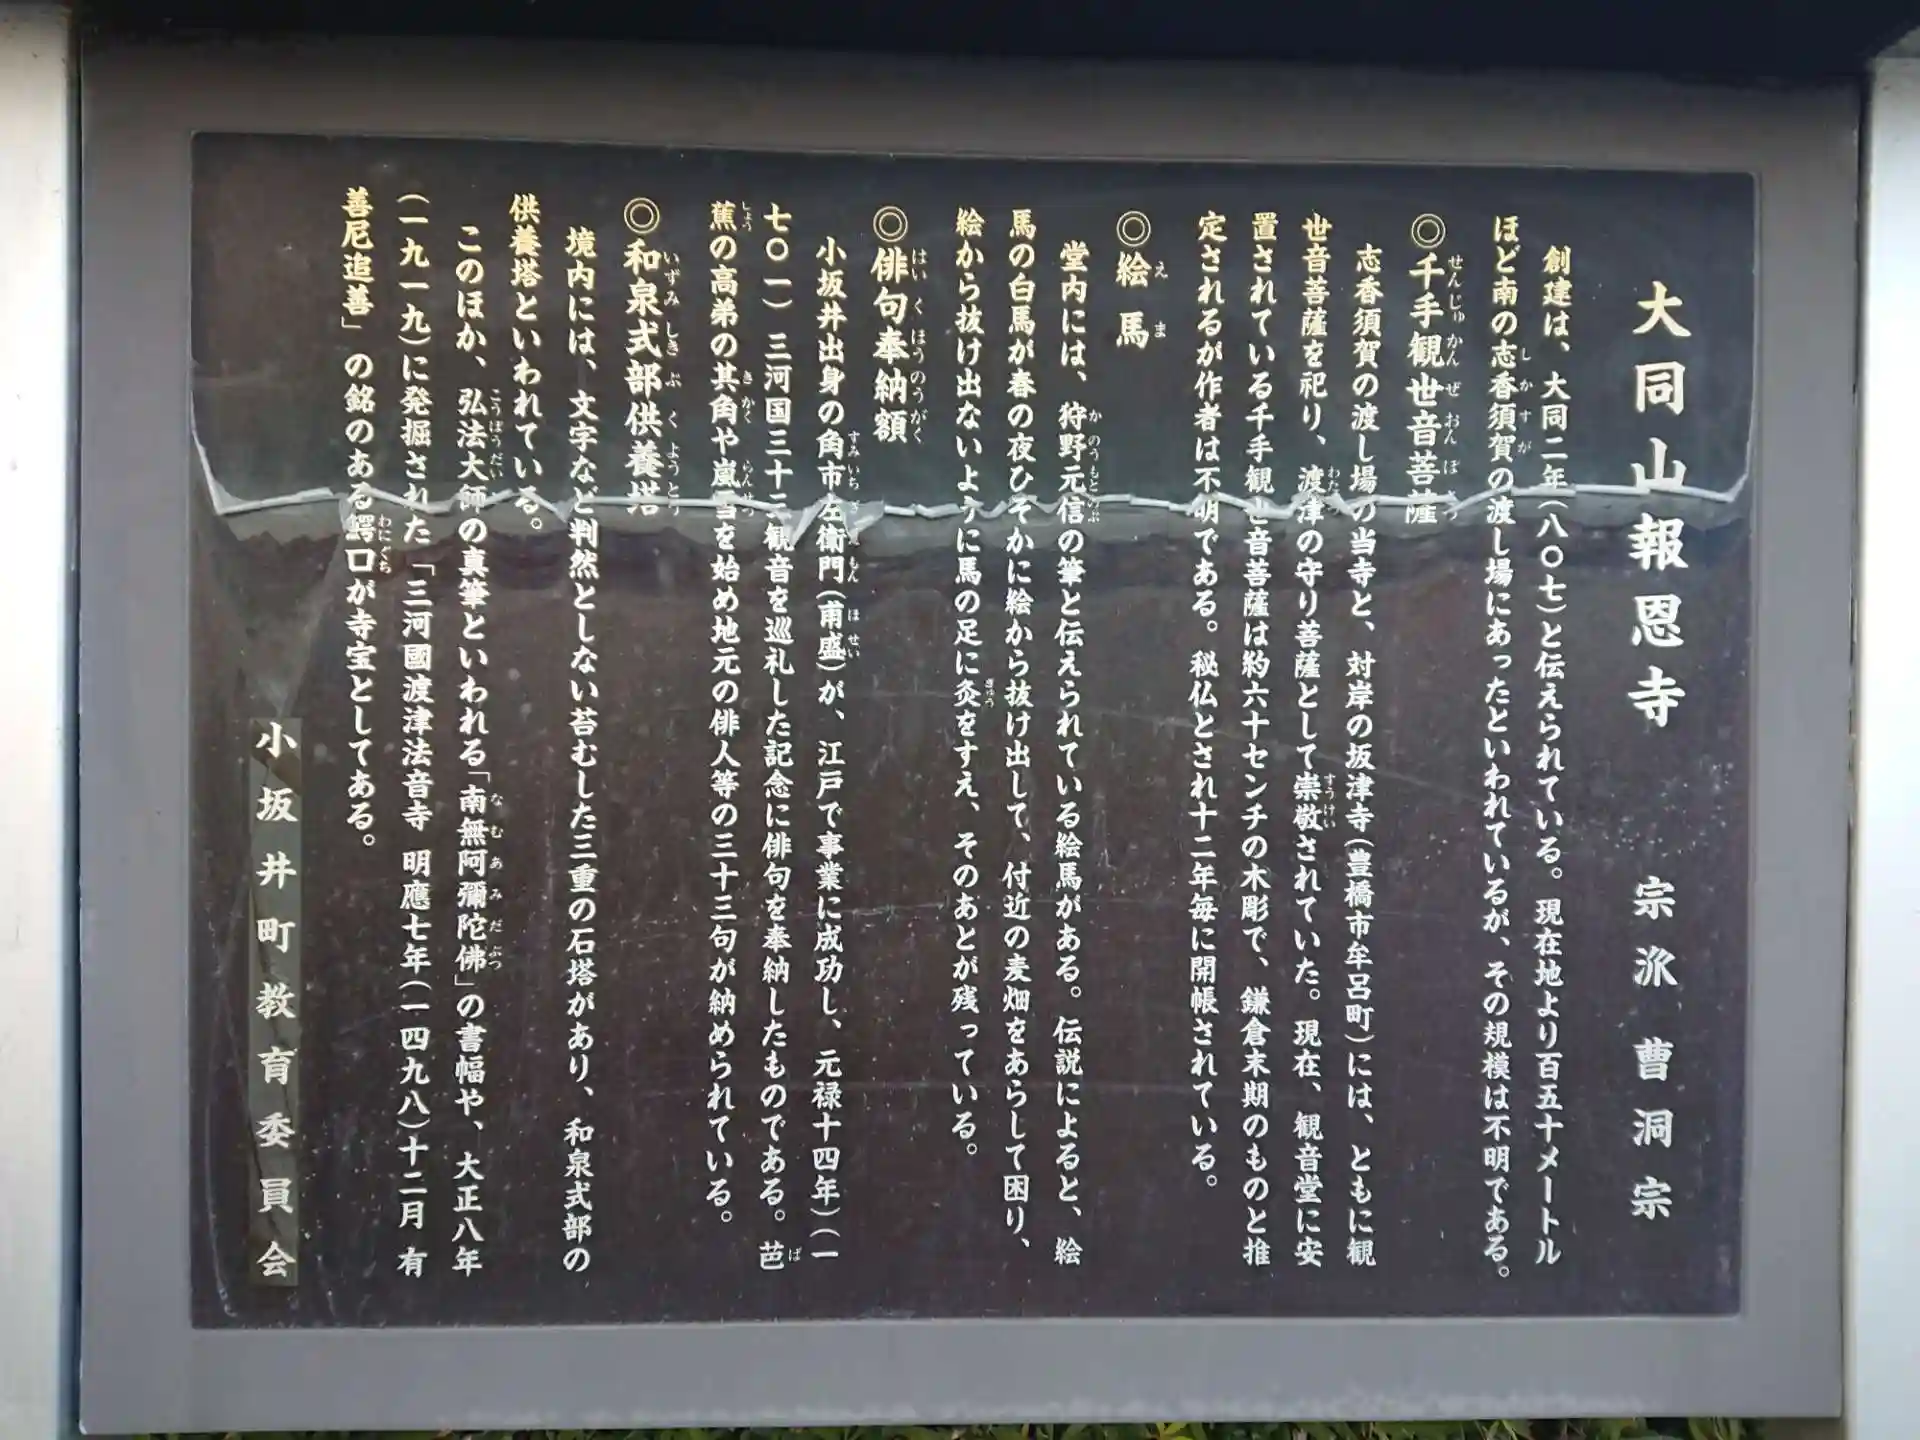 大同山報恩寺　宗派　曹洞宗
創建は、大同二年(八〇七)と伝えられている。現在地より百五十メートル
ほど南の志香須賀の渡し場にあったといわれているが、その規模は不明である。
◎千手観世音菩薩
志香須賀の渡し場の当寺と、対岸の坂津寺(豊橋市牟呂町)には、ともに観
世音菩薩を祀り、渡津の守り菩薩として崇敬されていた。現在、観音堂に安
置されている千手観世音菩薩は約六十センチの木彫で、鎌倉末期のものと推
定されるが作者は不明である。秘仏とされ十二年毎に開帳されている。
◎絵馬
堂内には、狩野元信の筆と伝えられている絵馬がある。伝説によると、絵
馬の白馬が春の夜ひそかに絵から抜け出して、付近の麦畑をあらして困り、
絵から抜け出ないように馬の足に灸をすえ、そのあとが残っている。
◎俳句奉納額
小坂井出身の角市左衛門(甫盛)が、江戸で事業に成功し、元禄十四年)(一
七〇一)三河国三十三観音を巡礼した記念に俳句を奉納したものである。芭
蕉の高弟の其角や嵐雪を始め地元の俳人等の三十三句が納められている。
◎和泉式部供養塔
境内には、文字など判然としない苔むした三重の石塔があり、和泉式部の
供養塔といわれている。
このほか、弘法大師の真筆といわれる「南無阿彌陀佛」の書幅や、大正八年
(一九一九)に発掘された「三河國渡津法音寺 明應七年(一四九八)十二月 有
善尼追善」の銘のある鰐口が寺宝としてある。
小坂井町教育委員会